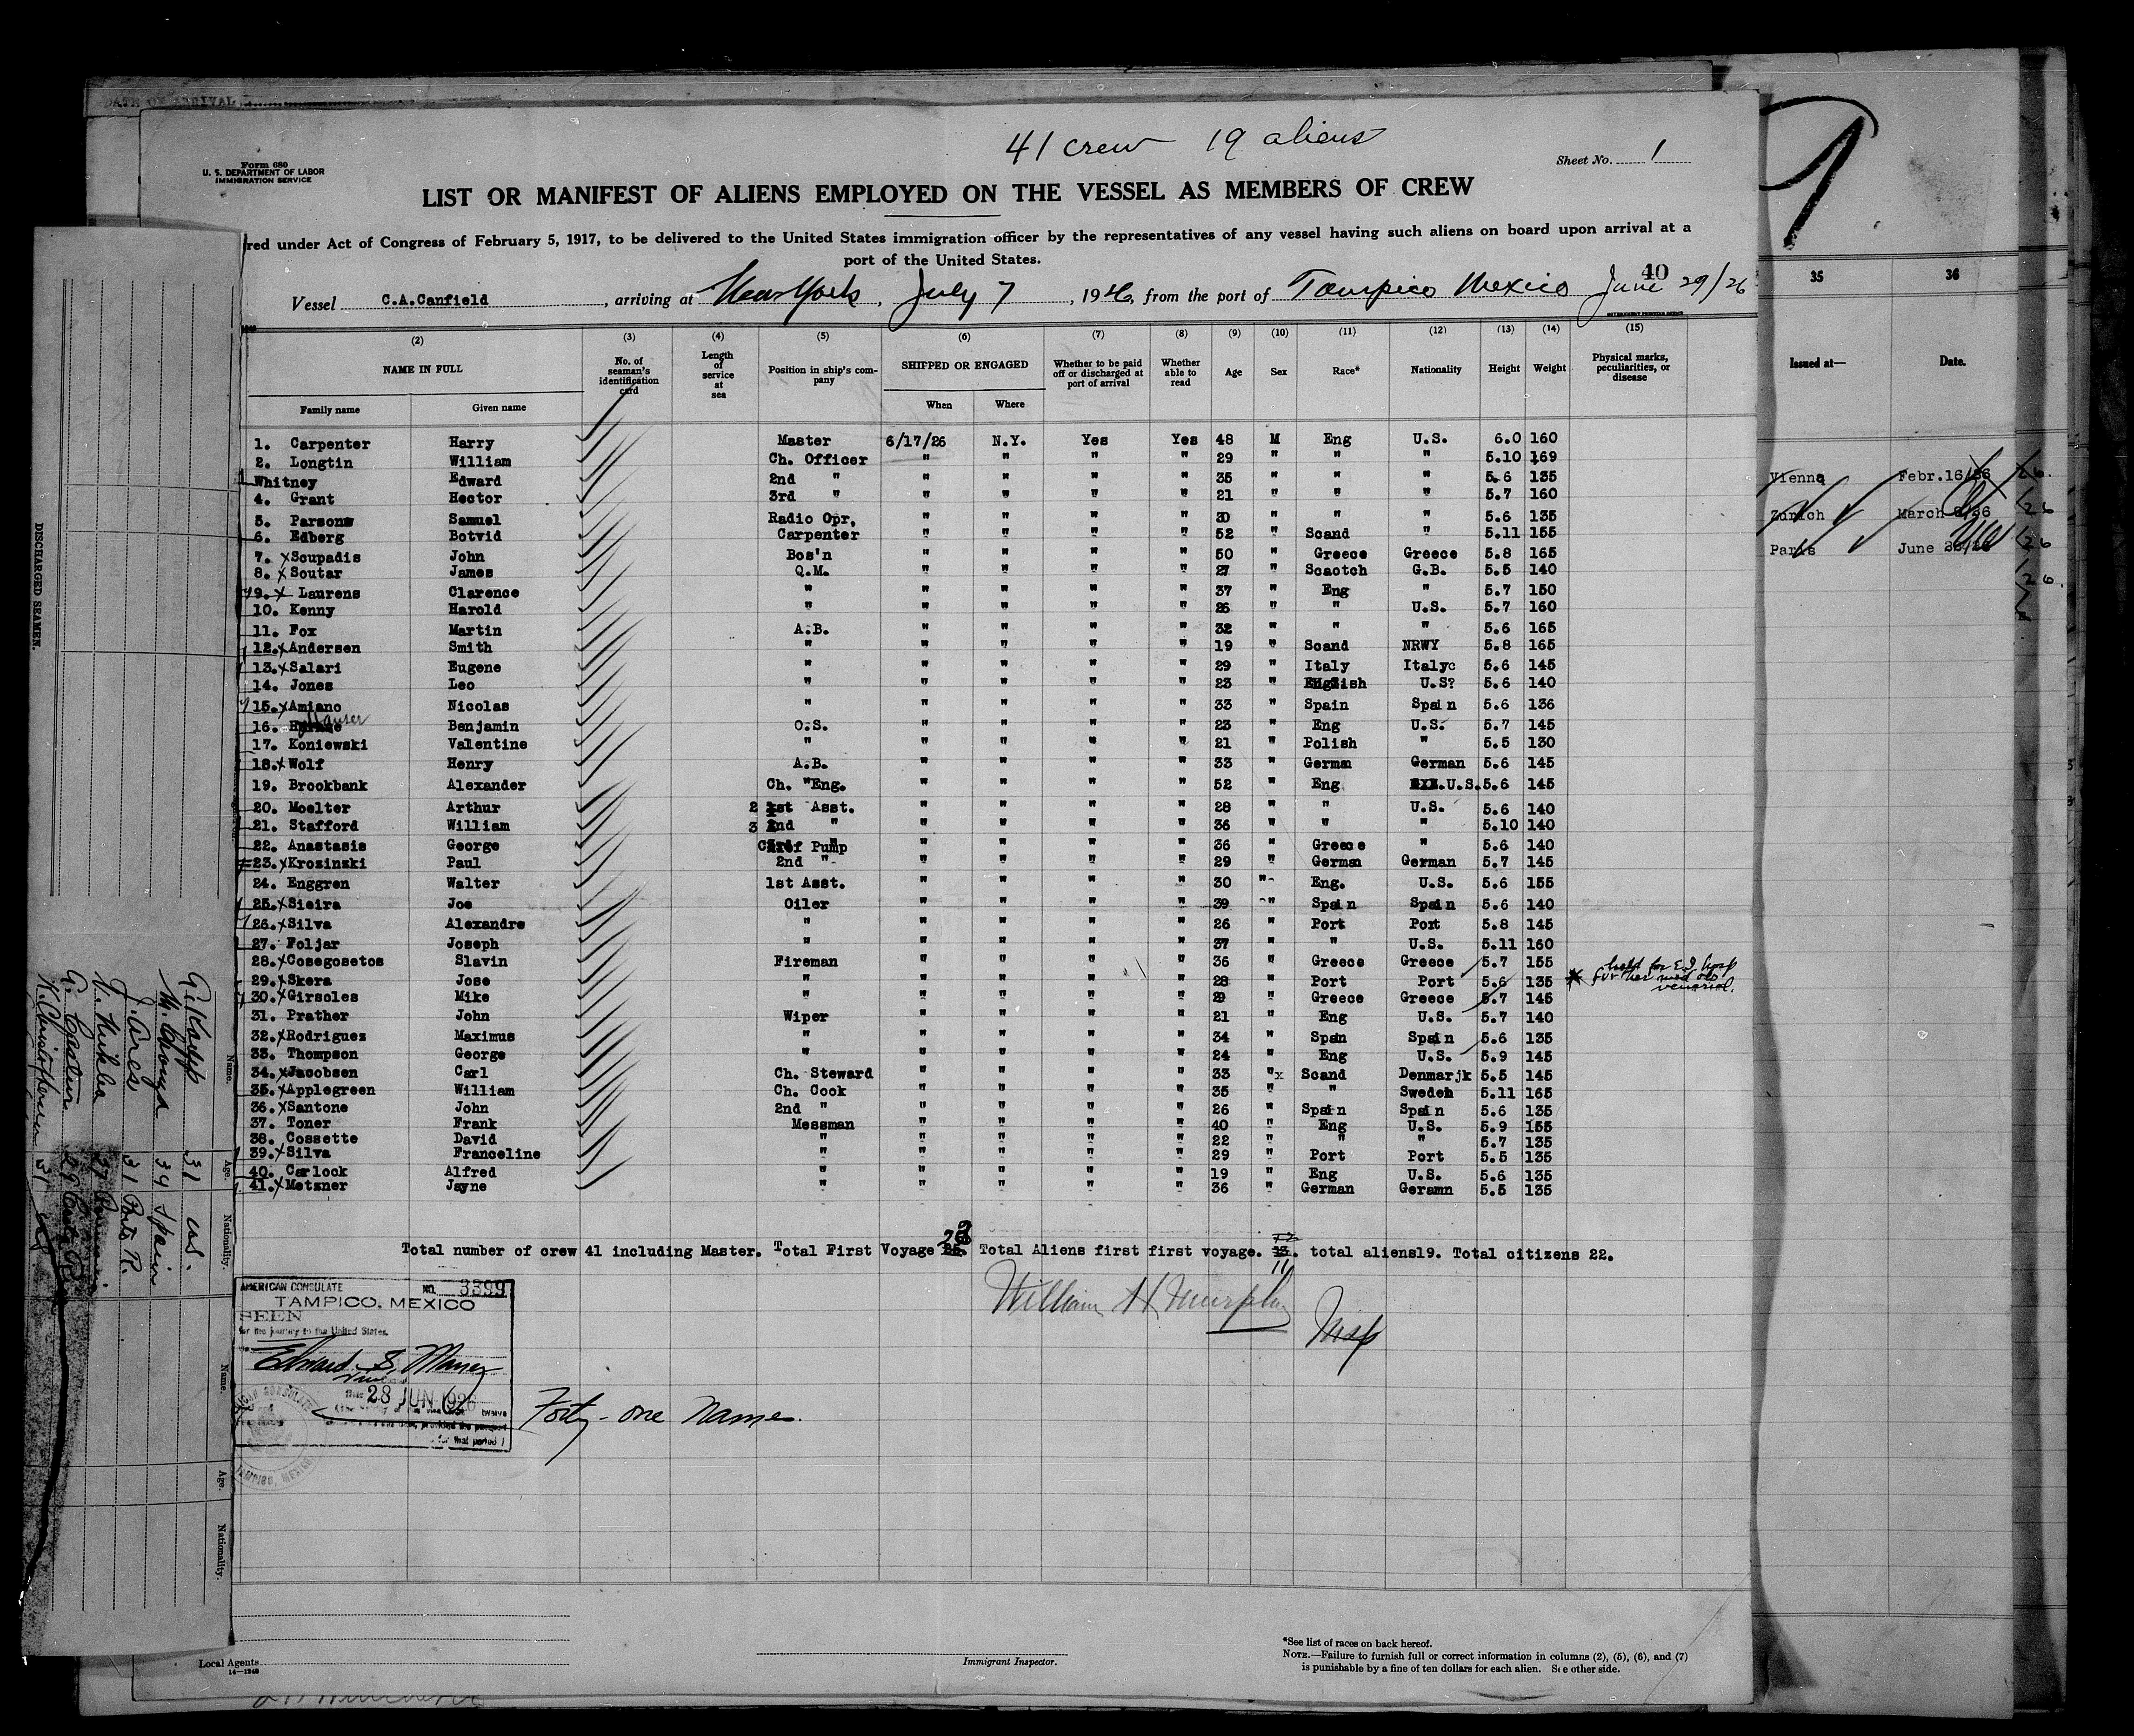 41 crew 19 aliens
Form 680
U. S. DEPARTMENT OF LABOR
IMMIGRATION SERVICE
Sheet No. 1
LIST OR MANIFEST OF ALIENS EMPLOYED ON THE VESSEL AS MEMBERS OF CREW
red under Act of Congress of February 5, 1917, to be delivered to the United States immigration officer by the representatives of any vessel having such aliens on board upon arrival at a
port of the United States.
40
Vessel C.A.Canfield, arriving at New York, July 7, 1926, from the port of Tampico Mexico June 29/26
(2) (3) (4) (5) (6) (7) (8) (9) (10) (11) (12) (13) (14) (15)
NAME IN FULL No. of seaman's identification card Length of service at sea Position in ship's company SHIPPED OR ENGAGED Whether to be paid off or discharged at port of arrival Whether able to read Age Sex Race* Nationality Height Weight Physical marks, peculiarities, or disease
Family name Given name When Where
1. Carpenter Harry Master 6/17/26 N.Y. Yes Yes 48 M Eng U.S. 6.0 160
2. Longtin William Ch. Officer " " " " 29 " " " 5.10 169
Whitney Edward 2nd " " " " " 35 " " " 5.6 135
4. Grant Hector 3rd " " " " " 21 " " " 5.7 160
5. Parsons Samuel Radio Opr. " " " " 30 " " " 5.6 135
6. Edberg Botvid Carpenter " " " " 52 " Scand " 5.11 155
7. x Soupadis John Bos'n " " " " 50 " Greece Greece 5.8 165
8. x Soutar James Q.M. " " " " 27 " Scactch G.B. 5.5 140
9. x Laurens Clarence " " " " " 37 " Eng " 5.7 150
10. Kenny Harold " " " " " 26 " " U.S. 5.7 160
11. Fox Martin A.B. " " " " 32 " " " 5.6 165
12. x Andersen Smith " " " " " 19 " Scand NRWY 5.8 165
13. x Salari Eugene " " " " " 29 " Italy Italyc 5.6 145
14. Jones Leo " " " " " 23 " English U.S? 5.6 140
15. x Amiano Nicolas " " " " " 33 " Spain Spain 5.6 136
16. Benjamin O.S. " " " " 23 " Eng U.S. 5.7 145
17. Koniewski Valentine " " " " " 21 " Polish " 5.5 130
18. x Wolf Henry A.B. " " " " 33 " German German 5.6 145
19. Brookbank Alexander Ch. "Eng. " " " " 52 " Eng U.S. 5.6 145
20. Moelter Arthur 2 1st Asst. " " " " 28 " " U.S. 5.6 140
21. Stafford William 3 2nd " " " " " 36 " " " 5.10 140
22. Anastasis George Chief Pump " " " " 36 " Greece " 5.6 140
23. x Krozinski Paul 2nd " " " " " 29 " German German 5.7 145
24. Enggren Walter 1st Asst. " " " " 30 " Eng. U.S. 5.6 155
25. x Sieira Joe Oiler " " " " 39 " Spain Spain 5.6 140
26. x Silva Alexandre " " " " " 26 " Port Port 5.8 145
27. Foljar Joseph " " " " " 37 " " U.S. 5.11 160
28. x Cosegosetos Slavin Fireman " " " " 36 " Greece Greece 5.7 155
29. x Skera Jose " " " " " 28 " Port Port 5.6 135 * held for E.I. Hosp further med obs venereal.
30. x Girsoles Mike " " " " " 29 " Greece Greece 5.7 145
31. Prather John Wiper " " " " 21 " Eng U.S. 5.7 140
32. x Rodriguez Maximus " " " " " 34 " Span Spain 5.6 135
33. Thompson George " " " " " 24 " Eng U.S. 5.9 145
34. x Jacobsen Carl Ch. Steward " " " " 33 "x Scand Denmarjk 5.5 145
35. x Applegreen William Ch. Cook " " " " 35 " " Sweden 5.11 165
36. x Santone John 2nd " " " " " 26 " Spain Spain 5.6 135
37. Toner Frank Messman " " " " 40 " Eng U.S. 5.9 155
38. Cossette David " " " " " 22 " " " 5.7 135
39. x Silva Franceline " " " " " 29 " Port Port 5.5 135
40. Carlock Alfred " " " " " 19 " Eng U.S. 5.6 135
41. x Metzner Jayne " " " " " 36 " German Geramn 5.5 135
Total number of crew 41 including Master. Total First Voyage Total Aliens first first voyage. 11 total aliens19. Total citizens 22.
William H Murphy
Insp
AMERICAN CONSULATE NO. 3399
TAMPICO, MEXICO
SEEN
for the journey to the United States.
Edward S. Maney
Vice
28 JUN 1926
for that period)
TAMPICO, MEXICO
Forty-one Names.
Local Agents
14—1240
Immigrant Inspector.
*See list of races on back hereof.
NOTE.—Failure to furnish full or correct information in columns (2), (5), (6), and (7)
is punishable by a fine of ten dollars for each alien. See other side.
35 36
Issued at— Date.
Vienna Febr.16/26
Zurich March
Paris June
DISCHARGED SEAMEN.
Name. Age. Nationality. Name. Age. Nationality.
G. Kopp 31 U.S.
34 Spain
J. Ares 31 Porto R.
27
29
K. Christophersen 31
DATE OF ARRIVAL